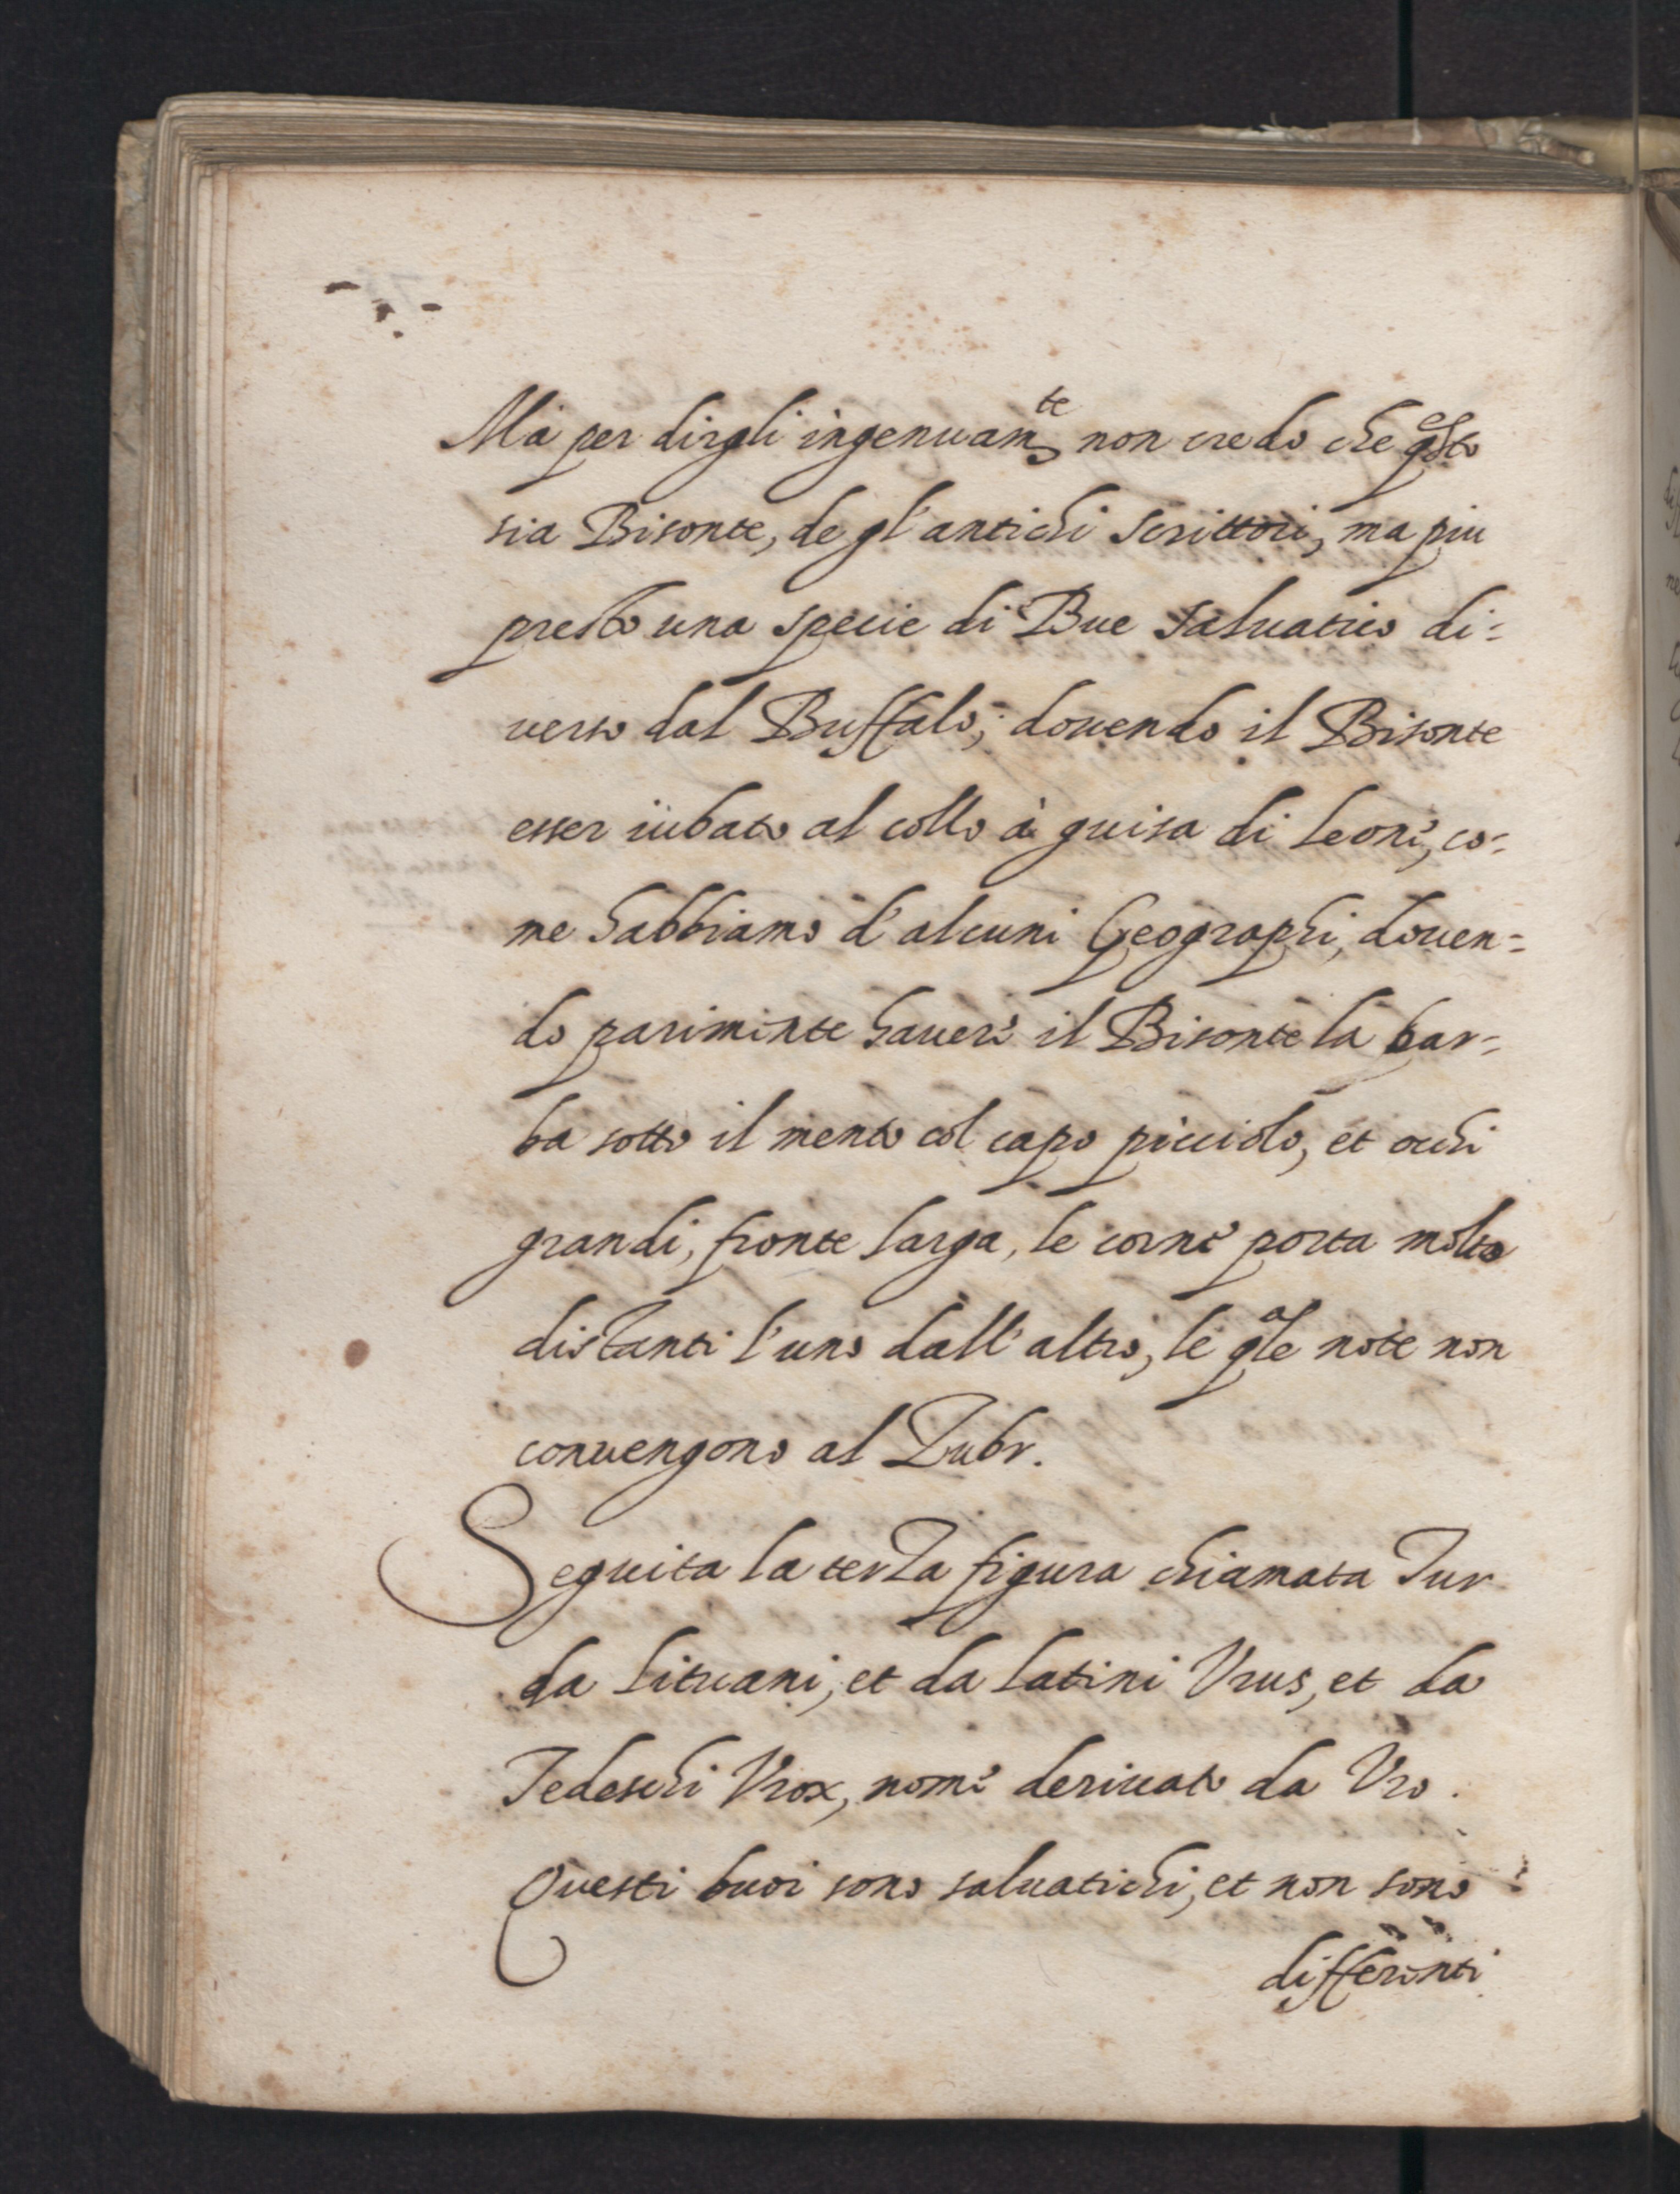 Mà per dirgli ingenuam.te non credo che q̃sto
sia Bisonte, de gl'antichi Scrittori, ma piu
presto una specie di Bue saluatico di=
uerso dal Buffalo; douendo il Bisonte
esser iubato al collo à guisa di leone, co=
me habbiamo d'alcuni Geographi, douen=
do parimente hauere il Bisonte la bar=
ba sotto il mento col capo picciolo, et occhi
grandi, fronte larga, le corne porta molto
distanti l'uno dall'altro, le q̃le note non
conuengono al Zubr.
Seguita la terza figura chiamata Tur
da Lituani, et da Latini Vrus, et da
Tedeschi Vrox, nome deriuato da Vro.
Questi buoi sono saluatichi, et non sono
differenti